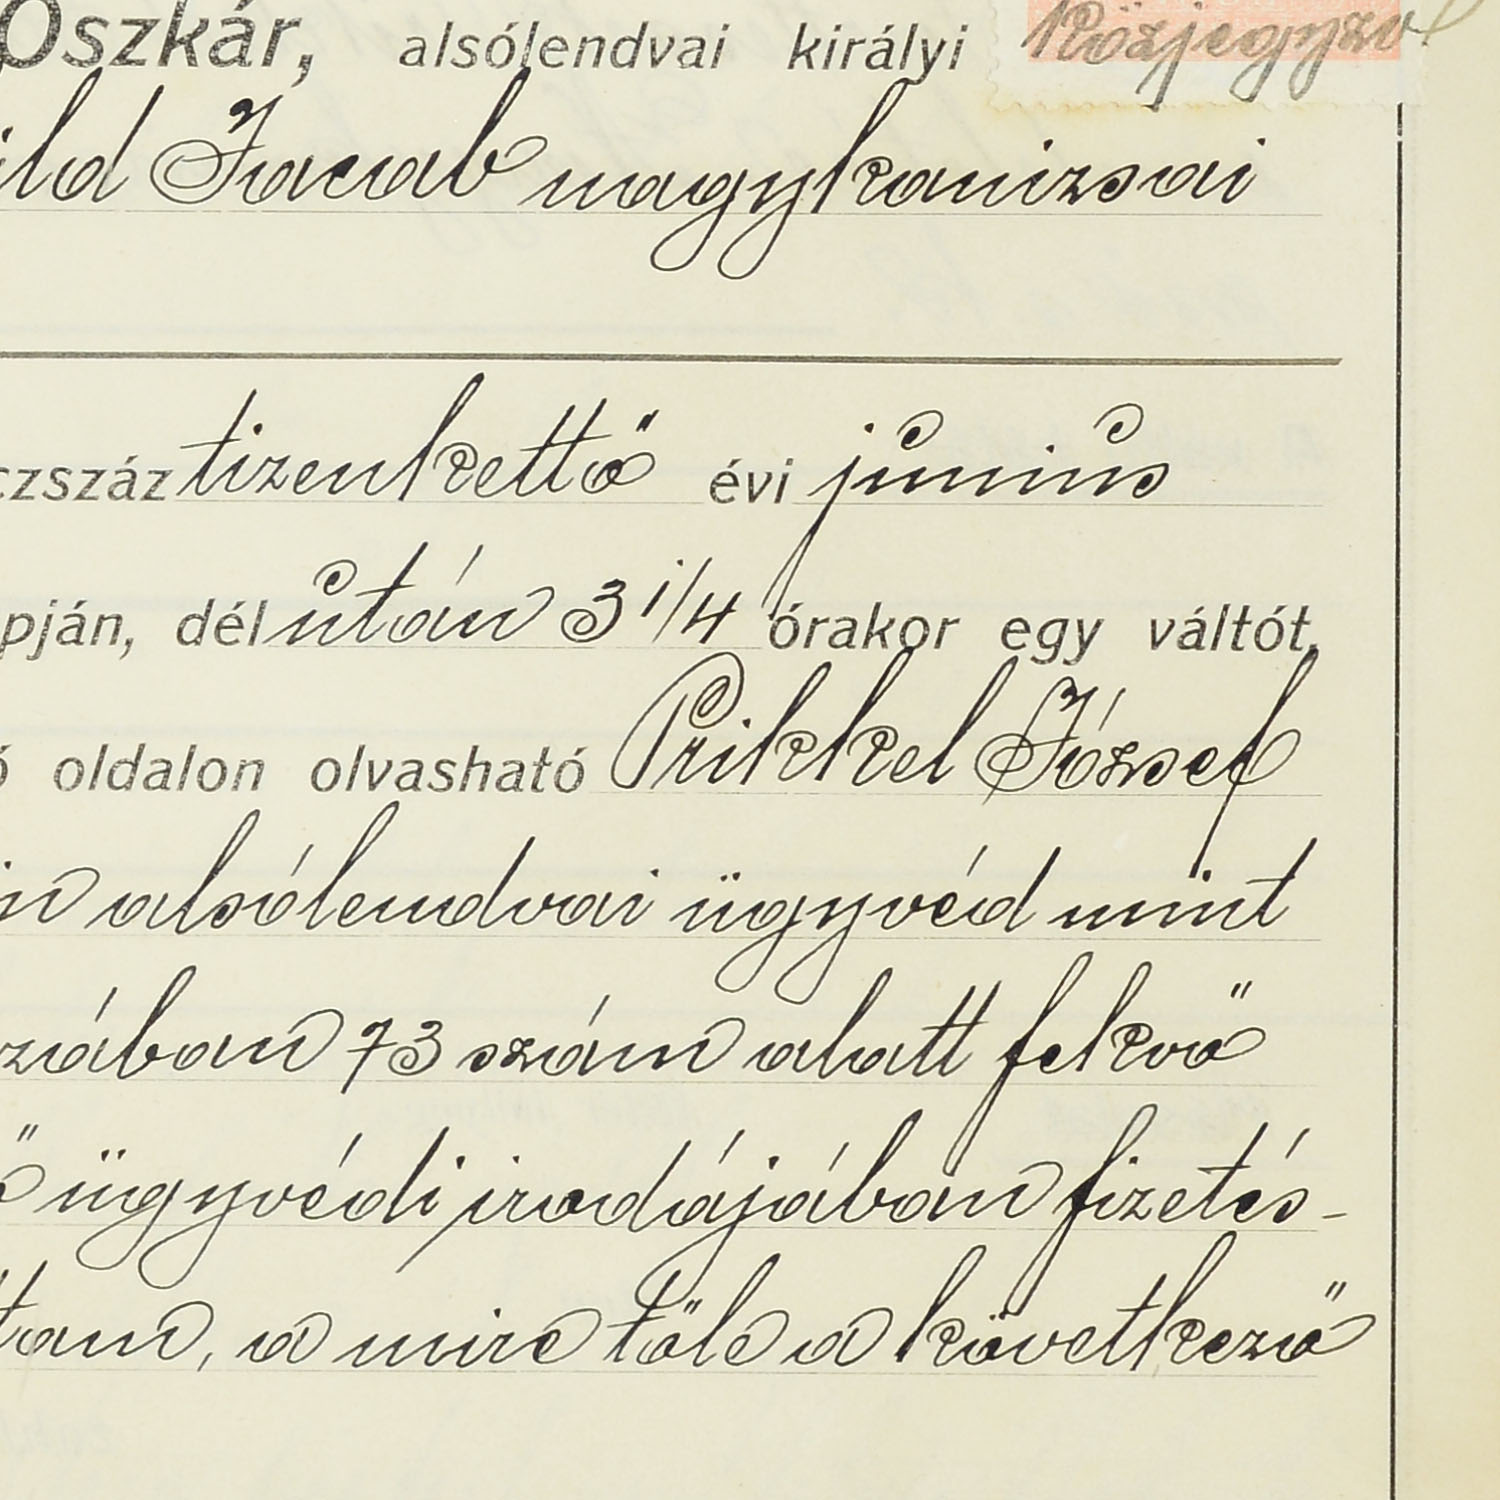 Oszkár, alsólendvai királyi Közjegyző
ild Jacab nagykanizsai
czszáz tizenkettő évi június
pján, dél után 3 1/4 órakor egy váltót,
ó oldalon olvasható Prikkel József
in alsólendvai ügyvéd mint
zában 73 szám alatt fekvő
ő ügyvédi irodájában fizetés-
tam, a mire tőle a következő